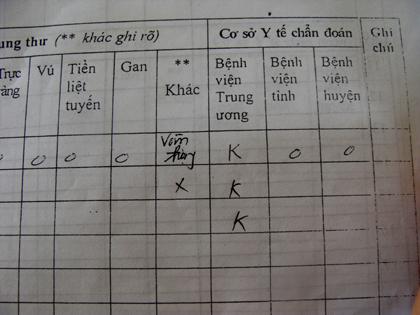 ung thư (** khác ghi rõ) Cơ sở Y tế chẩn đoán Ghi chú
Trực tràng Vú Tiền liệt tuyến Gan ** Khác Bệnh viện Trung ương Bệnh viện tỉnh Bệnh viện huyện
0 0 0 0 Vòm họng K 0 0
x K
K